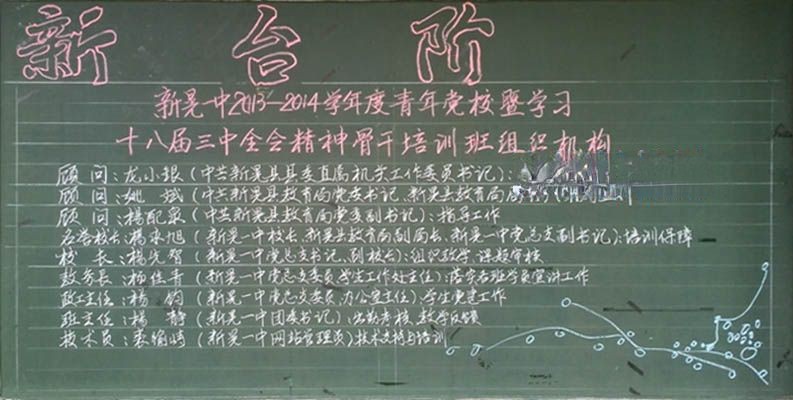 新台阶
新晃一中2013—2014学年度青年党校暨学习
十八届三中全会精神骨干培训班组织机构
顾 问:龙小银(中共新晃县县委直属机关工作委员书记):
顾 问:姚斌(中共新晃县教育局党委书记、新晃县教育局局
顾 问:杨配泉(中共新晃县教育局党委副书记):指导工作
名誉校长:杨来旭(新晃一中校长、新晃县教育局副局长、新晃一中党总支副书记):培训保障
校 长:杨先智(新晃一中党总支书记、副校长):组织政学 课题审核
教务长:杨佳青(新晃一中党总支委员、学生工作处主任):落实各班学员宣讲工作
政工主任:杨钧(新晃一中党总支委员、办公室主任):学生党建工作
班主任:杨 静(新晃一中团委书记):出勤考核、教学反馈
技术员:袁愉崎(新晃一中网站管理员)技术支持与培训